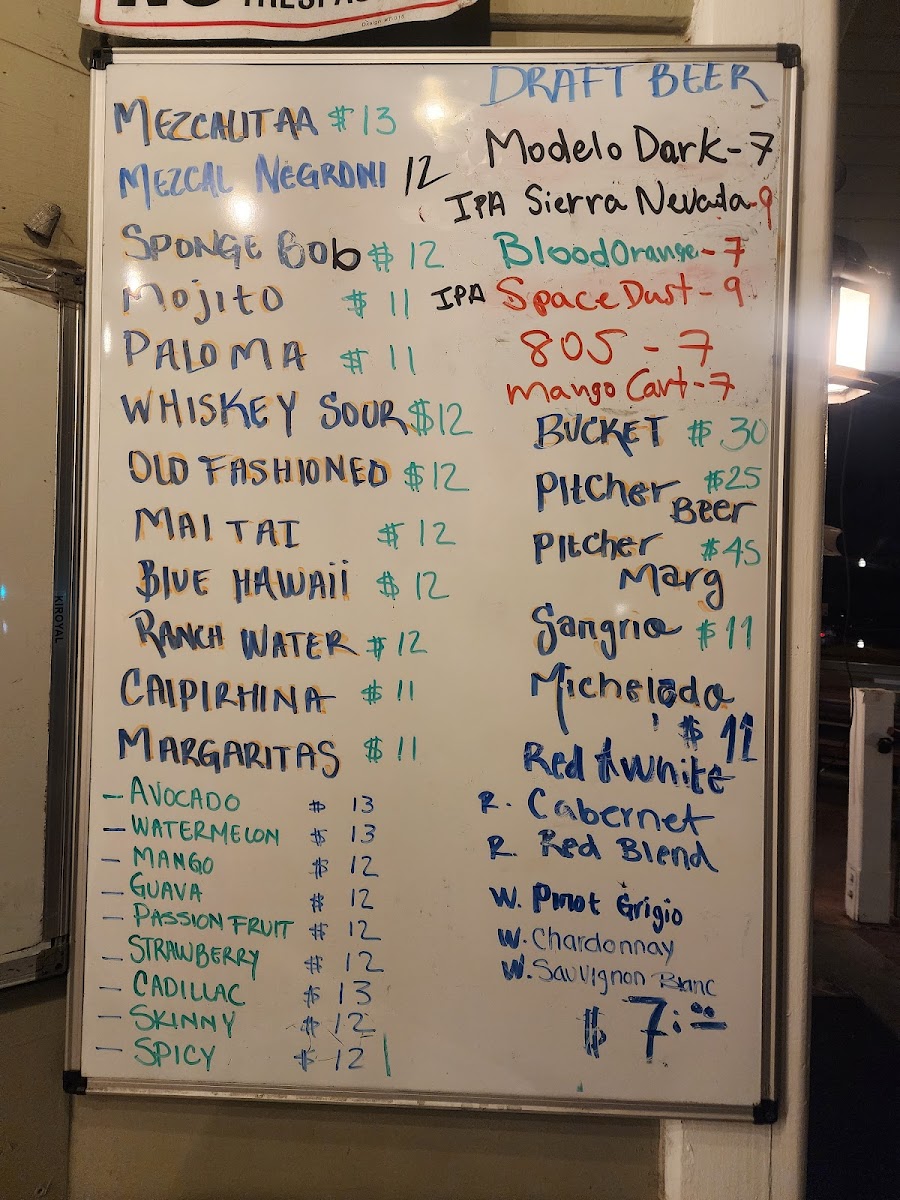 MEZCALITAA $13
MEZCAL NEGRONI 12
SPONGE Bob $ 12
Mojito $ 11
PALOMA $ 11
WHISKEY SOUR $12
OLD FASHIONED $12
MAI TAI $ 12
BLUE HAWAii $ 12
RANCH WATER $ 12
CAIPIRHINA $ 11
MARGARITAS $ 11
- AVOCADO $ 13
- WATERMELON $ 13
- MANGO $ 12
- GUAVA $ 12
- PASSION FRUIT $ 12
- STRAWBERRY $ 12
- CADILLAC $ 13
- SKINNY $ 12
- SPICY $ 12
DRAFT BEER
Modelo Dark - 7
IPA Sierra Nevada - 9
Blood Orange - 7
IPA Space Dust - 9
805 - 7
Mango Cart - 7
BUCKET $ 30
Pitcher $25
Beer
Pitcher $45
Marg
Sangria $11
Michelada
$ 11
Red & White
R. Cabernet
R. Red Blend
W. Pinot Grigio
W. Chardonnay
W. Sauvignon Blanc
$ 7:00
KIROYAL